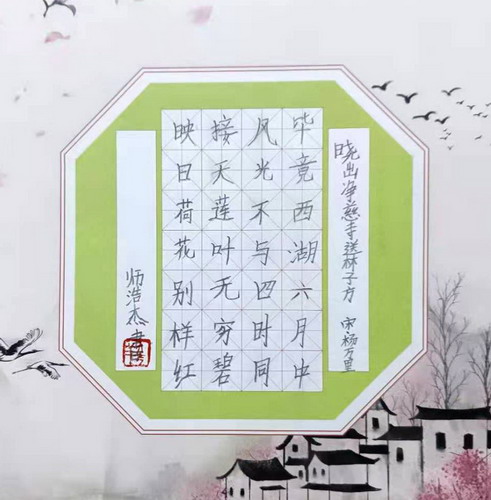 晓出净慈寺送林子方 宋 杨万里
毕竟西湖六月中
风光不与四时同
接天莲叶无穷碧
映日荷花别样红
师浩杰书